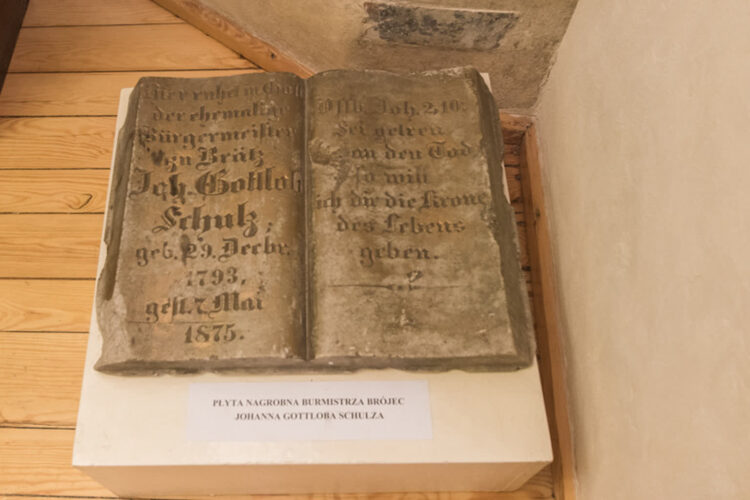 Hier ruhet in Gott
der ehemalige
Bürgermeister
zu Brätz
Joh. Gottlob
Schulz,
geb. 29. Decbr.
1793,
gest. 7. Mai
1875.
Offb. Joh. 2,10:
Sei getreu
an den Tod
so will
ich dir die Krone
des Lebens
geben.
PŁYTA NAGROBNA BURMISTRZA BRÓJEC
JOHANNA GOTTLOBA SCHULZA